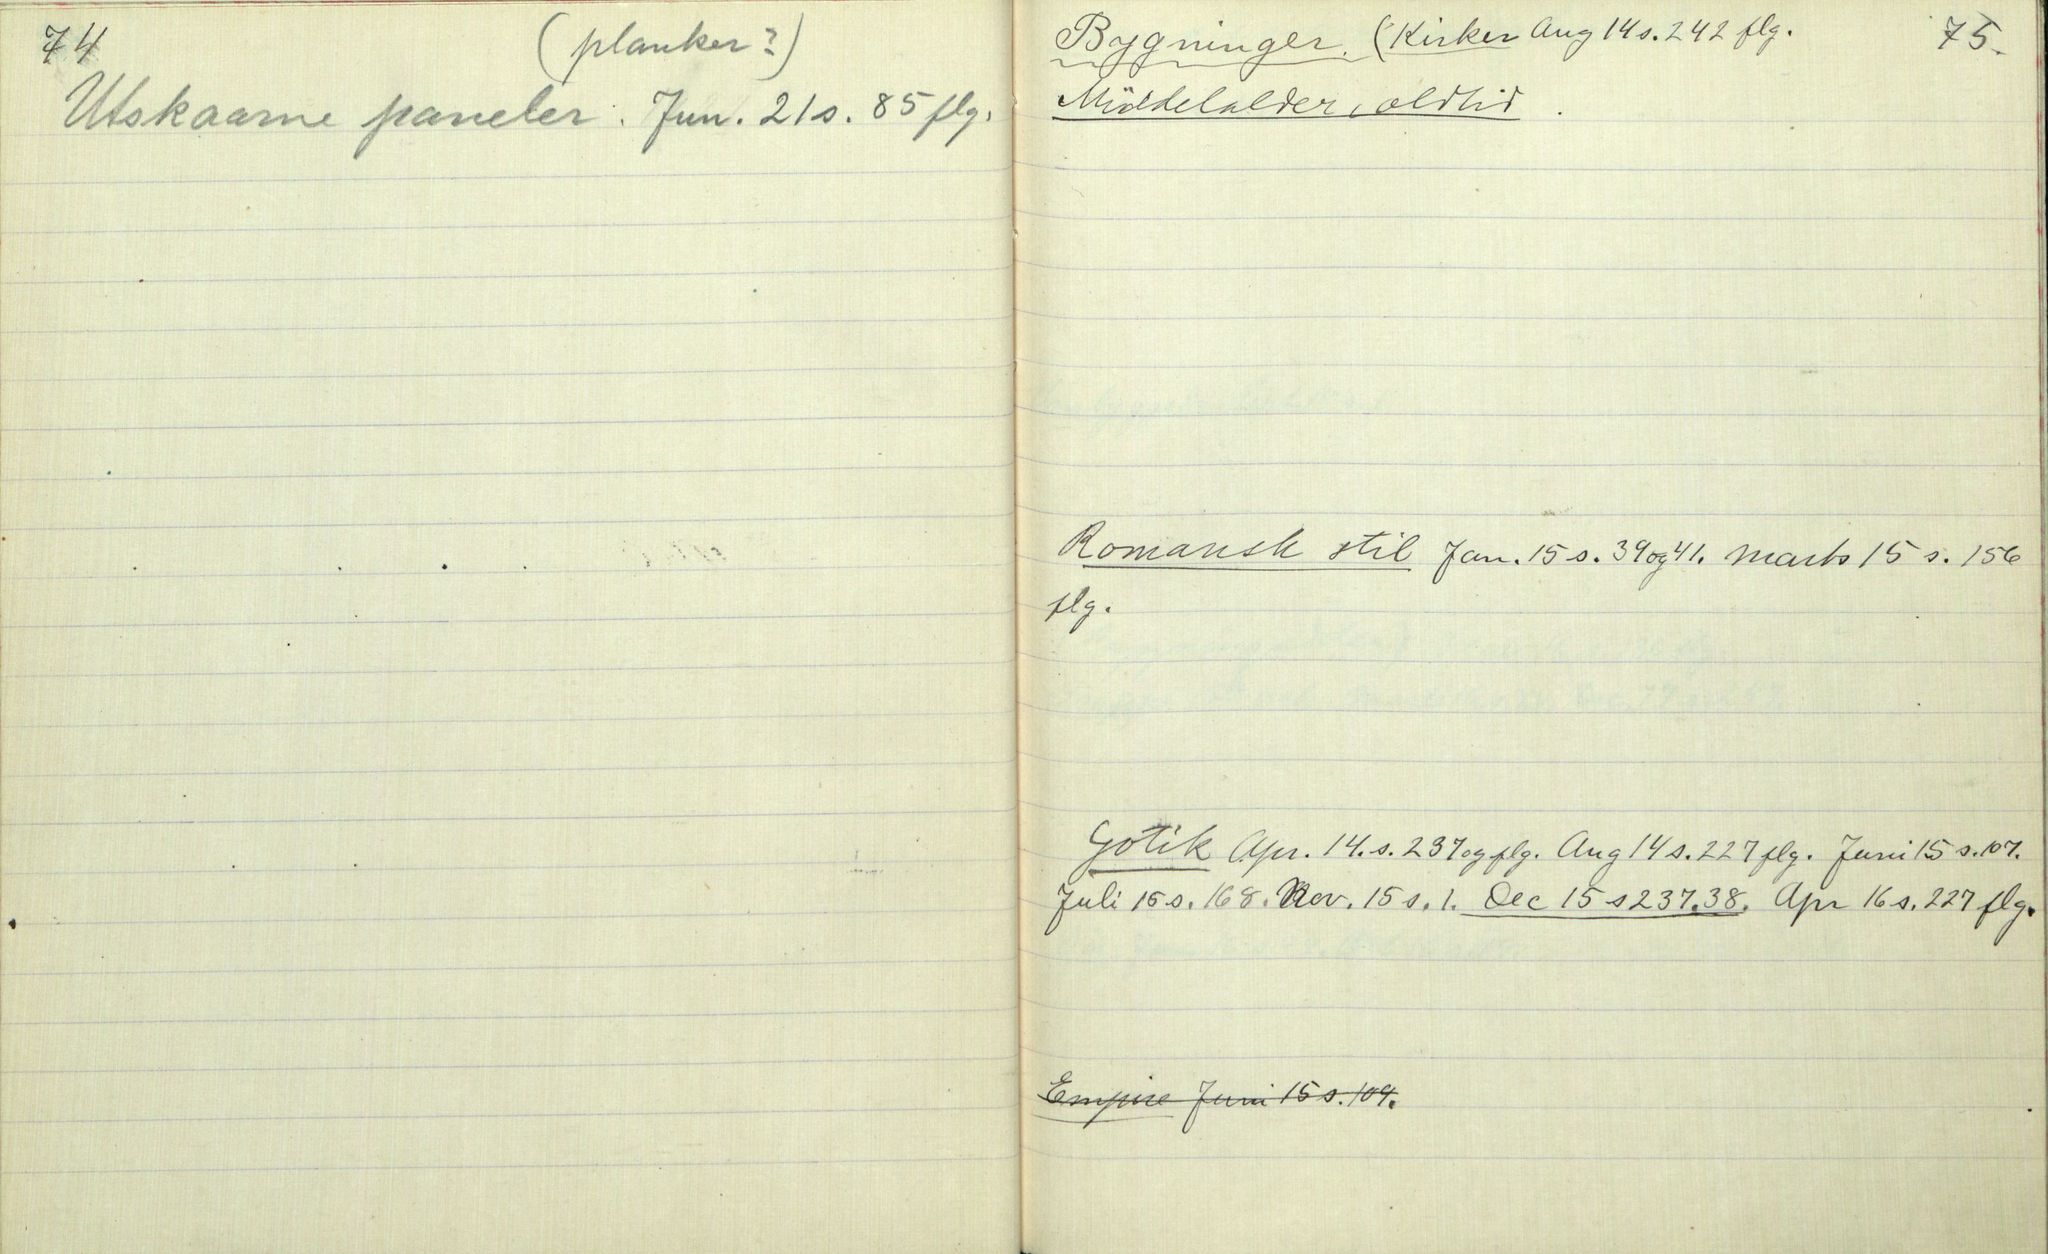 74
(planker?)
Utskaarne paneler. Jun. 21 s. 85 flg.
Bygninger. (Kirker Aug 14 s. 242 flg.
75.
Middelalder, oldtid.
Romansk stil Jan. 15 s. 39 og 41. Marts 15 s. 156
flg.
Gotik Apr. 14. s. 237 og flg. Aug 14 s. 227 flg. Juni 15 s. 107.
Juli 15 s. 168. Nov. 15 s. 1. Dec 15 s 237.38. Apr 16 s. 227 flg.
Empire Juni 15 s. 109.